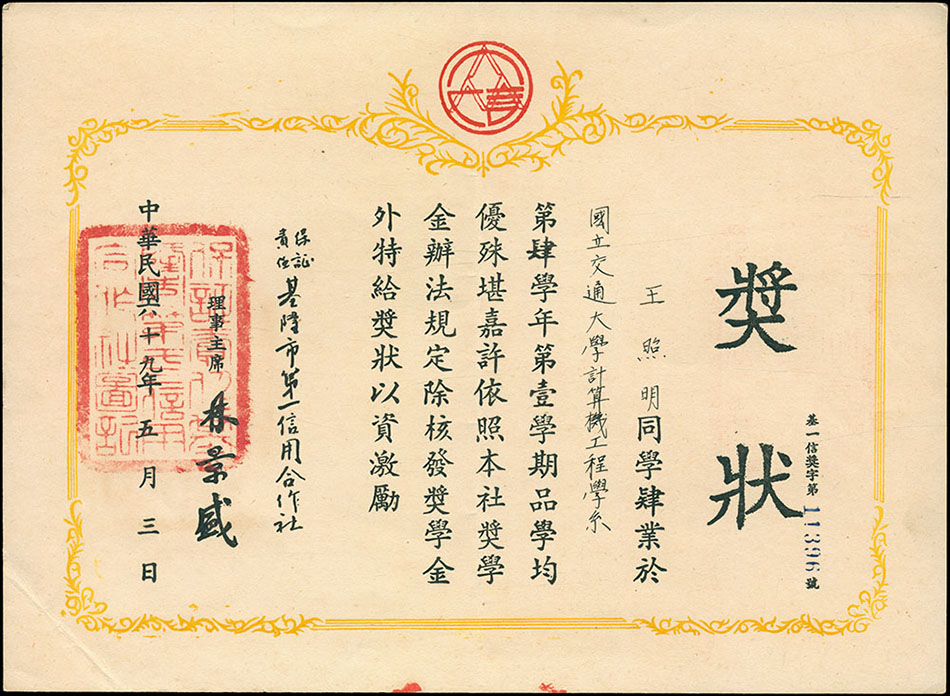 獎狀
基一信獎字第11396號
王照明同學肄業於
國立交通大學計算機工程學系
第肆學年第壹學期品學均
優殊堪嘉許依照本社獎學
金辦法規定除核發獎學金
外特給獎狀以資激勵
保證責任基隆市第一信用合作社
理事主席 林景盛
中華民國六十九年五月三日